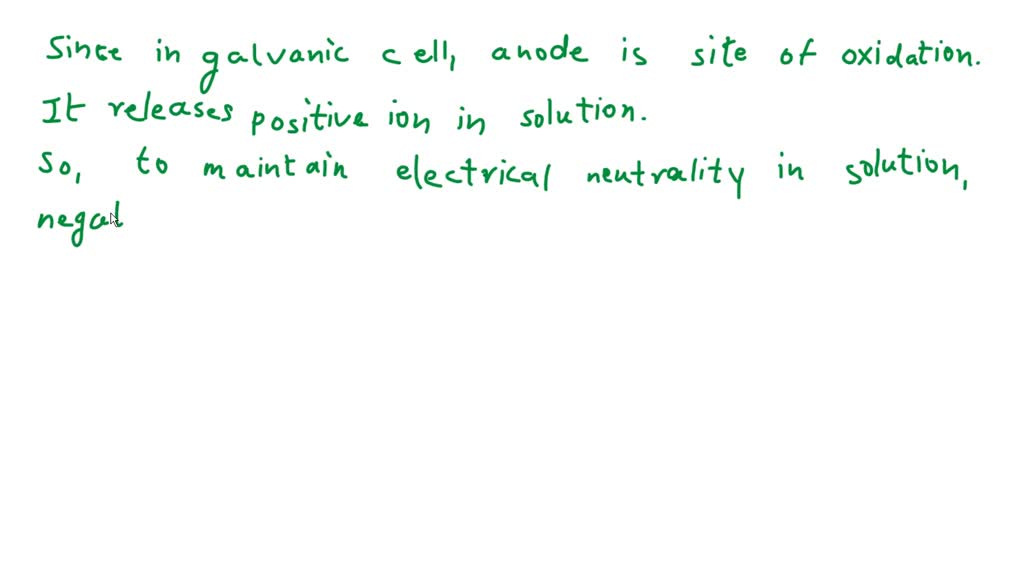 Since in galvanic cell, anode is site of oxidation.
It releases positive ion in solution.
So, to maintain electrical neutrality in solution,
negat